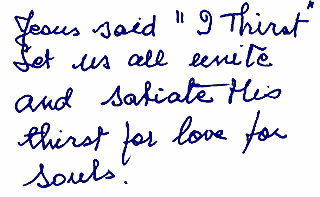 Jesus said "I Thirst"
Let us all unite
and satiate His
thirst for love for
souls.